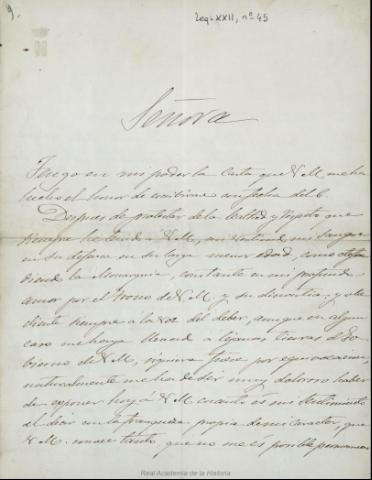 9.
Leg. XXII, nº 45
Señora
Tengo en mi poder la Carta que V.M. me ha
hecho el honor de escribirme con fecha del 6.
Despues de protestar de la lealtad y respeto que
siempre he tenido a V.M., mi sangre
en su defensa en su larga menor edad, como
diendo la Monarquia, constante en mi profundo
amor por el trono de V.M. y su dinastia, y obe
diente siempre à la voz del deber, aunque en algun
caso me haya llevado à lejanas tierras el Go
bierno de V.M., siquiera fuese por equivocacion,
naturalmente me ha de ser muy doloroso haber
de exponer hoy à V.M. cuanto es mi sentimiento
al decir con la franqueza propia de mi caracter, que
V.M. conoce tanto, que no me es posible permanecer
Real Academia de la Historia